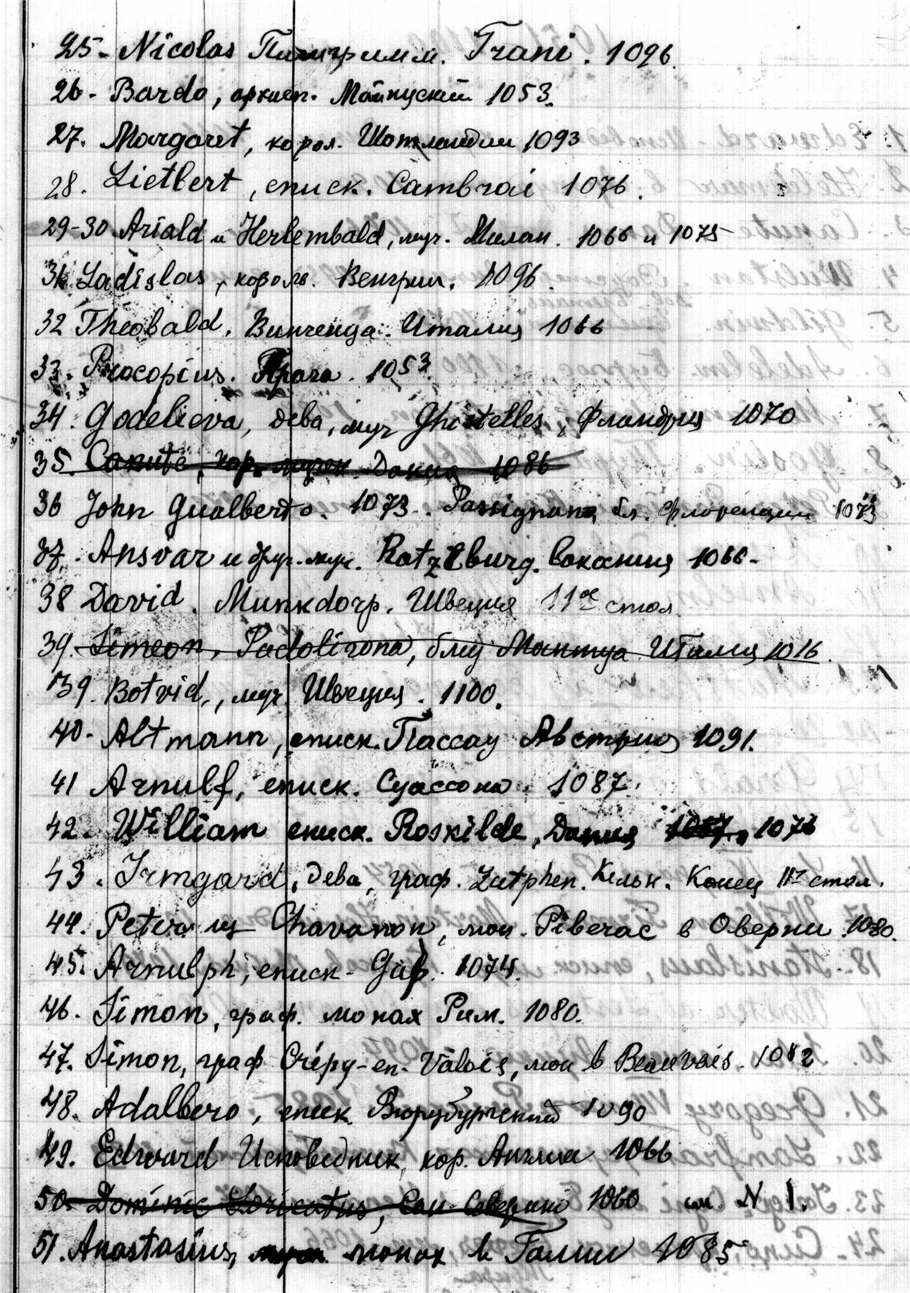 25. Nicolas Пилигримм. Trani. 1096.
26. Bardo, архиеп. Майнцский 1053.
27. Margaret, корол. Шотландии 1093
28. Lietbert, еписк. Cambrai 1076.
29-30. Ariald и Herlembald, муч. Милан. 1066 и 1075
31. Ladislas, король. Венгрии. 1096.
32 Theobald, Виченца Италия 1066
33. Procopius. Прага. 1053.
34. Godelieva, дева, муч Ghistelles, Фландрия 1070
35 Canute, кор. мучен. Дания 1086
36 John Gualberto. 1073. Passignano, бл. Флоренции 1073
37. Ansvar и друг. муч. Ratzeburg. 1066.
38 David, Мункдорп. Швеция 11го стол.
39. Simeon, Padolirona, близ Мантуа Италия 1016.
39. Botvid, муч. Швеция. 1100.
40. Altmann, еписк. Пассау Австрия 1091.
41 Arnulf, еписк. Суассона. 1087.
42. William еписк. Roskilde, Дания 1067, 1076
43. Irmgard, дева, граф. Zutphen. Кельн. Конец 11го стол.
44. Peter из Chavanon, мон. Piberac в Оверни 1080.
45. Arnulph, еписк. Gap. 1074.
46. Simon, граф. монах Рим. 1080.
47. Simon, граф Crépy-en-Valois, мон в Beauvais. 1082
48. Adalbero, еписк Вюрцбургский 1090
49. Edward Исповедник, кор. Англии 1066
50. Dominic Loricatus, Сан Северино 1060 см. N 1.
51. Anastasius, монах в Галлии 1085